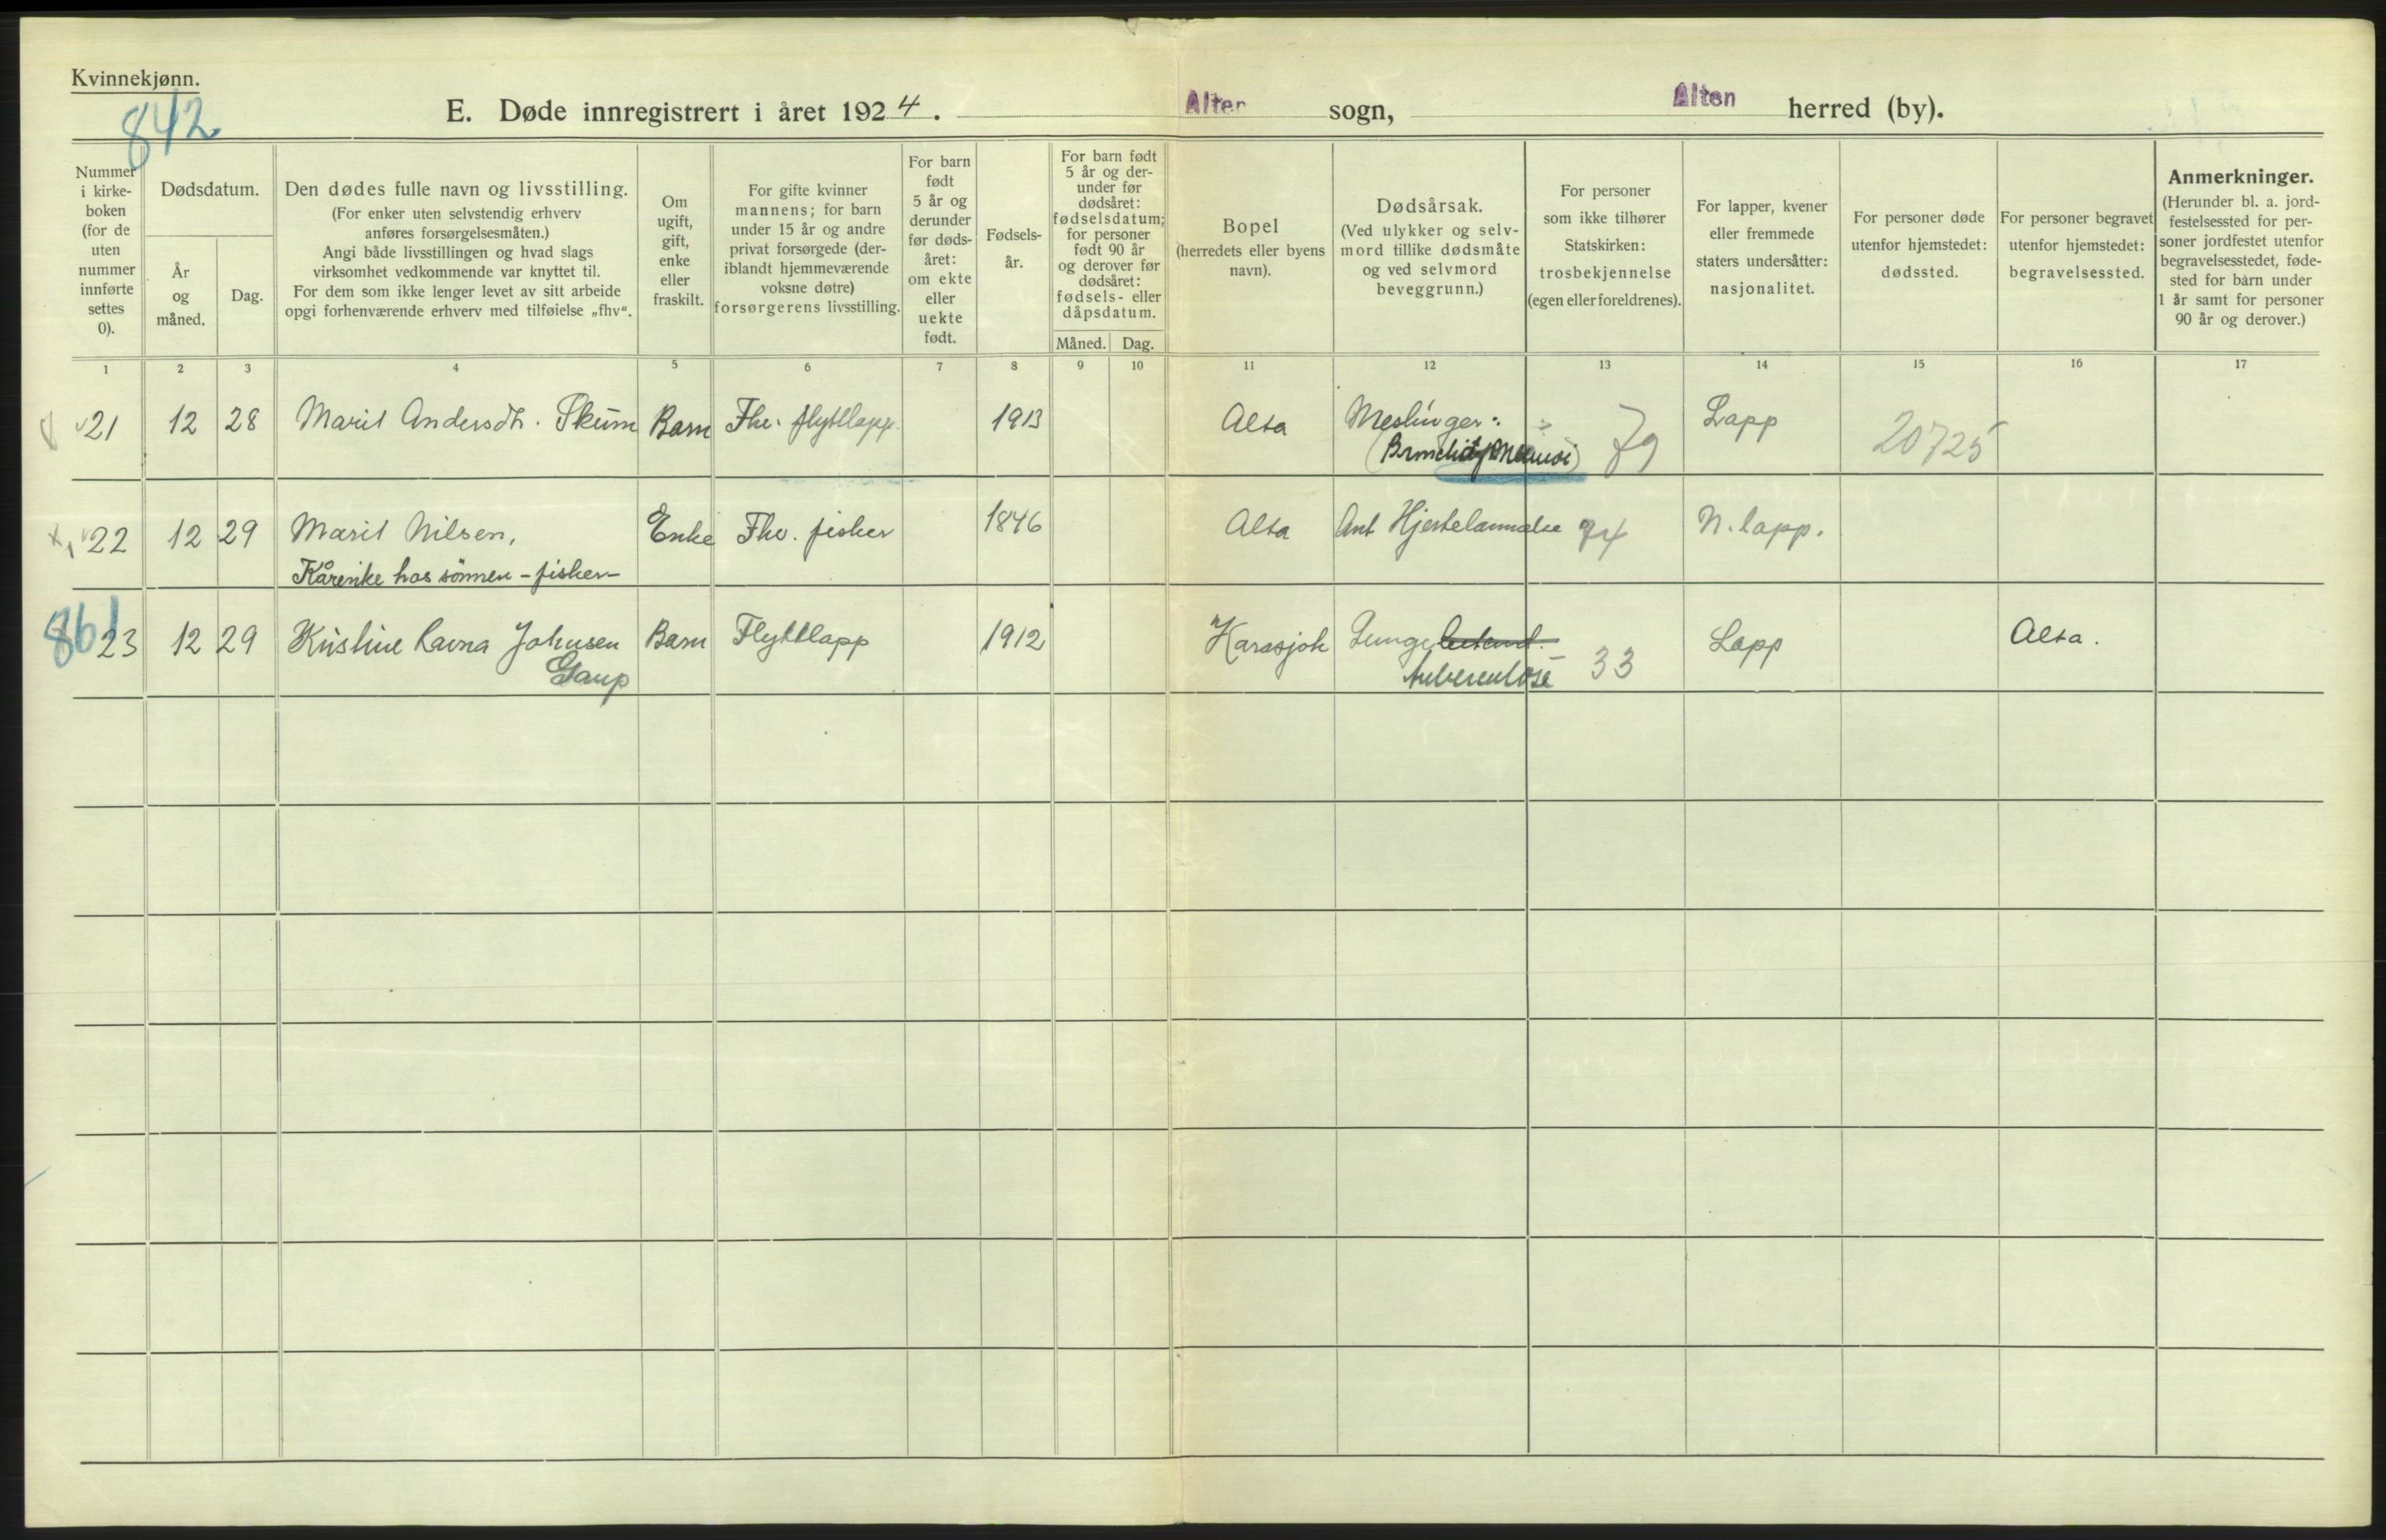 Kvinnekjønn.
842
E. Døde innregistrert i året 1924. Alten sogn, Alten herred (by).
Nummer i kirke- boken (for de uten nummer innførte settes 0).
Dødsdatum.
År og måned.
Dag.
Den dødes fulle navn og livsstilling.
(For enker uten selvstendig erhverv
anføres forsørgelsesmåten.)
Angi både livsstillingen og hvad slags
virksomhet vedkommende var knyttet til.
For dem som ikke lenger levet av sitt arbeide
opgi forhenværende erhverv med tilføielse „fhv“.
Om
ugift,
gift,
enke
eller
fraskilt.
For gifte kvinner
mannens; for barn
under 15 år og andre
privat forsørgede (der-
iblandt hjemmeværende
voksne døtre)
forsørgerens livsstilling.
For barn
født
5 år og
derunder
før døds-
året:
om ekte
eller
uekte
født.
Fødsels-
år.
For barn født
5 år og der-
under før
dødsåret:
fødselsdatum;
for personer
født 90 år
og derover før
dødsåret:
fødsels- eller
dåpsdatum.
Måned. Dag.
Bopel
(herredets eller byens
navn).
Dødsårsak.
(Ved ulykker og selv-
mord tillike dødsmåte
og ved selvmord
beveggrunn.)
For personer
som ikke tilhører
Statskirken:
trosbekjennelse
(egen eller foreldrenes).
For lapper, kvener
eller fremmede
staters undersåtter:
nasjonalitet.
For personer døde
utenfor hjemstedet:
dødssted.
For personer begravet
utenfor hjemstedet:
begravelsessted.
Anmerkninger.
(Herunder bl. a. jord-
festelsessted for per-
soner jordfestet utenfor
begravelsesstedet, føde-
sted for barn under
1 år samt for personer
90 år og derover.)
1 2 3 4 5 6 7 8 9 10 11 12 13 14 15 16 17
21 12 28 Marit Andersdtr. Skum Barn Fhv. flyttlapp 1913 Alta Meslinger: 79 Lapp 20725
22 12 29 Marit Nilsen, Enke Fhv. fisker 1846 Alta Ant Hjertelammelse 94 N. lapp.
Kårenke hos sönnen - fisker -
861
23 12 29 Kristine Ravna Johnsen Barn Flyttlapp 1912 Karasjok Lunge 33 Lapp Alta.
Gaup tuberculose